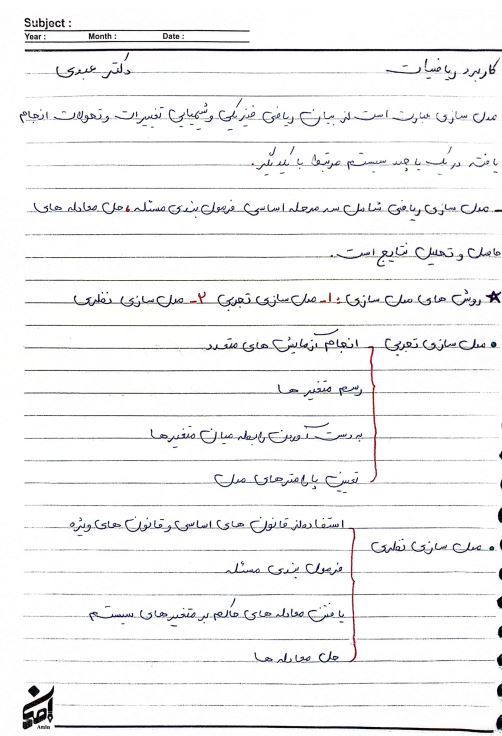 Subject :
Year : Month : Date :
کاربرد ریاضیات دکتر عبدی
مدل سازی عبارت است از بیان ریاضی فیزیکی و شیمیایی تغییرات و تحولات انجام
یافته در یک یا چند سیستم مرتبط با یکدیگر.
- مدل سازی ریاضی شامل سه مرحله اساسی فرمول بندی مسئله، حل معادله های
حاصل و تحلیل نتایج است.
★ روش های مدل سازی: ۱- مدل سازی تجربی ۲- مدل سازی نظری
• مدل سازی تجربی انجام آزمایش های متعدد
رسم متغیر ها
به دست آوردن رابطه میان متغیرها
تعیین پارامترهای مدل
استفاده از قانون های اساسی و قانون های ویژه
• مدل سازی نظری
فرمول بندی مسئله
یافتن معادله های حاکم بر متغیرهای سیستم
حل معادله ها
امین
Amin